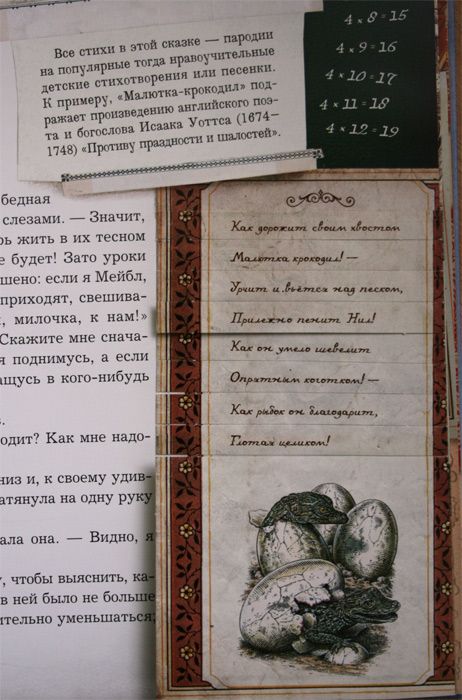 Все стихи в этой сказке — пародии
на популярные тогда нравоучительные
детские стихотворения или песенки.
К примеру, «Малютка-крокодил» под-
ражает произведению английского поэ-
та и богослова Исаака Уоттса (1674–
1748) «Противу праздности и шалостей».
4 × 8 = 15
4 × 9 = 16
4 × 10 = 17
4 × 11 = 18
4 × 12 = 19
бедная
слезами. — Значит,
жить в их тесном
е будет! Зато уроки
шено: если я Мейбл,
приходят, свешива-
милочка, к нам!»
Скажите мне снача-
я поднимусь, а если
ащусь в кого-нибудь
одит? Как мне надо-
низ и, к своему удив-
атянула на одну руку
ала она. — Видно, я
чтобы выяснить, ка-
в ней было не больше
ительно уменьшаться;
Как дорожит своим хвостом
Малютка крокодил! —
Урчит и вьётся над песком,
Прилежно пенит Нил!
Как он умело шевелит
Опрятным коготком! —
Как рыбок он благодарит,
Глотая целиком!